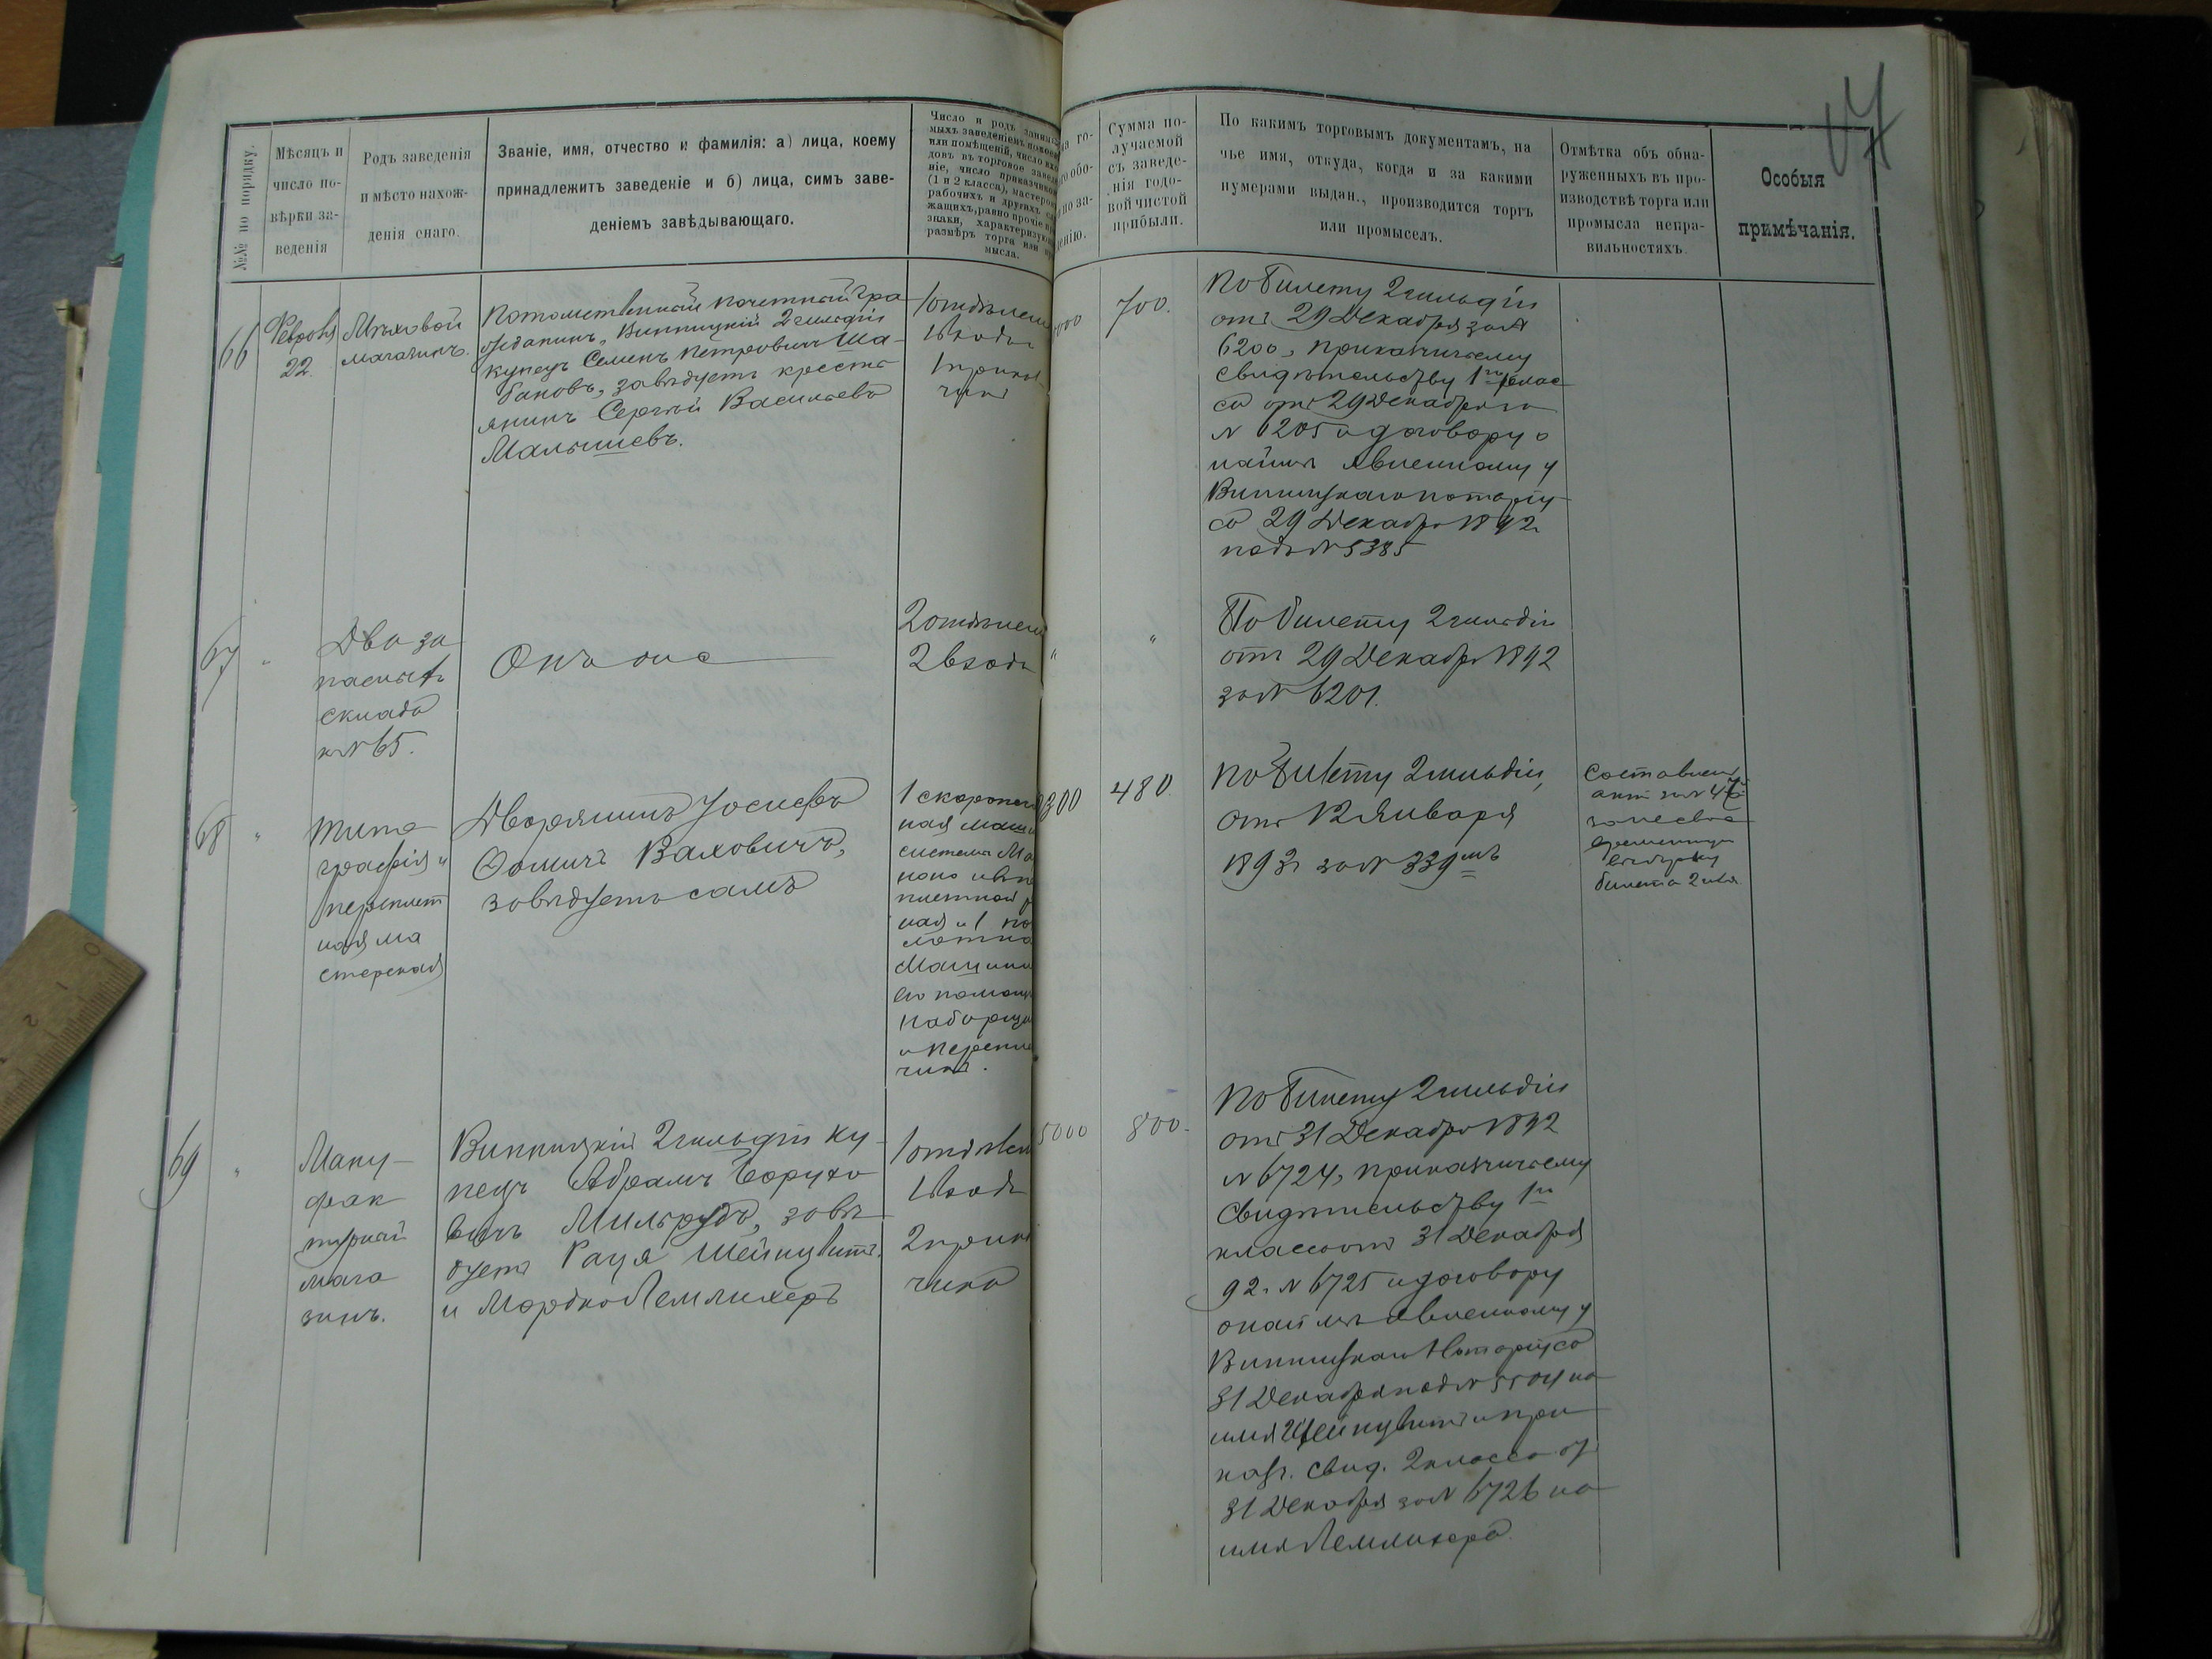 17
№№ по порядку.
Мѣсяцъ и
число по-
вѣрки за-
веденія
Родъ заведенія
и мѣсто нахож-
денія онаго.
Званіе, имя, отчество и фамилія: а) лица, коему
принадлежитъ заведеніе и б) лица, симъ заве-
деніемъ завѣдывающаго.
Число и родъ занима
мыхъ заведеніемъ покоев
или помѣщеній, число вхо
довъ въ торговое заведе
ніе, число приказчиков
(1 и 2 класса), мастеров
рабочихъ и другихъ
жащихъ, равно прочіе
знаки, характеризую
размѣръ торга или
мысла.
Сумма по-
лучаемой
съ заведе-
нія годо-
вой чистой
прибыли.
По какимъ торговымъ документамъ, на
чье имя, откуда, когда и за какими
нумерами выдан., производится торгъ
или промыселъ.
Отмѣтка объ обна-
руженныхъ въ про-
изводствѣ торга или
промысла непра-
вильностяхъ.
Особыя
примѣчанія.
66
Февраля
22.
Мѣховой
магазинъ.
Потомственный почетный гра
жданинъ, Винницкій 2 гильдіи
купецъ Семенъ Петровичъ Ша-
бановъ, завѣдуетъ крестъ
янинъ Сергѣй Васильевъ
Малышевъ.
1 отдѣлен
1 входъ
1 приказ
чикъ
000
700.
По билету 2 гильдіи
отъ 29 Декабря за №
6200, приказчичьему
свидѣтельству 1го клас
са отъ 29 Декабря за
№ 6205 и договору о
наймѣ явленному у
Винницкаго нотаріу
са 29 Декабря 1892
подъ № 5385
67
"
Два за
пасныхъ
склада
к № 65.
Онъ же
2 отдѣлен
2 входа
"
"
По билету 2 гильдіи
отъ 29 Декабря 1892
за № 6201.
68
"
Типо
графія и
переплет
ная ма
стерская
Дворянинъ Іосифъ
Фомичъ Ваховичъ,
завѣдуетъ самъ
1 скоропечат
ная маши
система Ма
ная и 1 по
Машини
его помощ
Наборщи
и Перепле
чикъ.
300
480
По билету 2 гильдіи,
отъ 12 Января
1893 за № 339мъ
Составленъ
актъ за № 4
за несвое
временную
выборку
билета 2 гил.
69
"
Ману-
фак
турный
мага
зинъ.
Винницкій 2 гильдіи ку-
пецъ Абрамъ Борухо
вичъ Мильрудъ, завѣ
дуетъ Рауя Шейнцвитъ
и Мордко Лемлихеръ
1 отдѣлен
1 входъ
2 прика
чика
5000
800.
По билету 2 гильдіи
отъ 31 Декабря 1892
№ 6724, приказчичьему
Свидѣтельству 1го
класса отъ 31 Декабря
92 г. № 6725 и договору
о наймѣ явленному у
Винницкаго Нотаріуса
31 Декабря подъ № 5504 на
имя Шейнцвитъ и при
каз. свид. 2 класса от
31 Декабря за № 6726 на
имя Лемлихера.